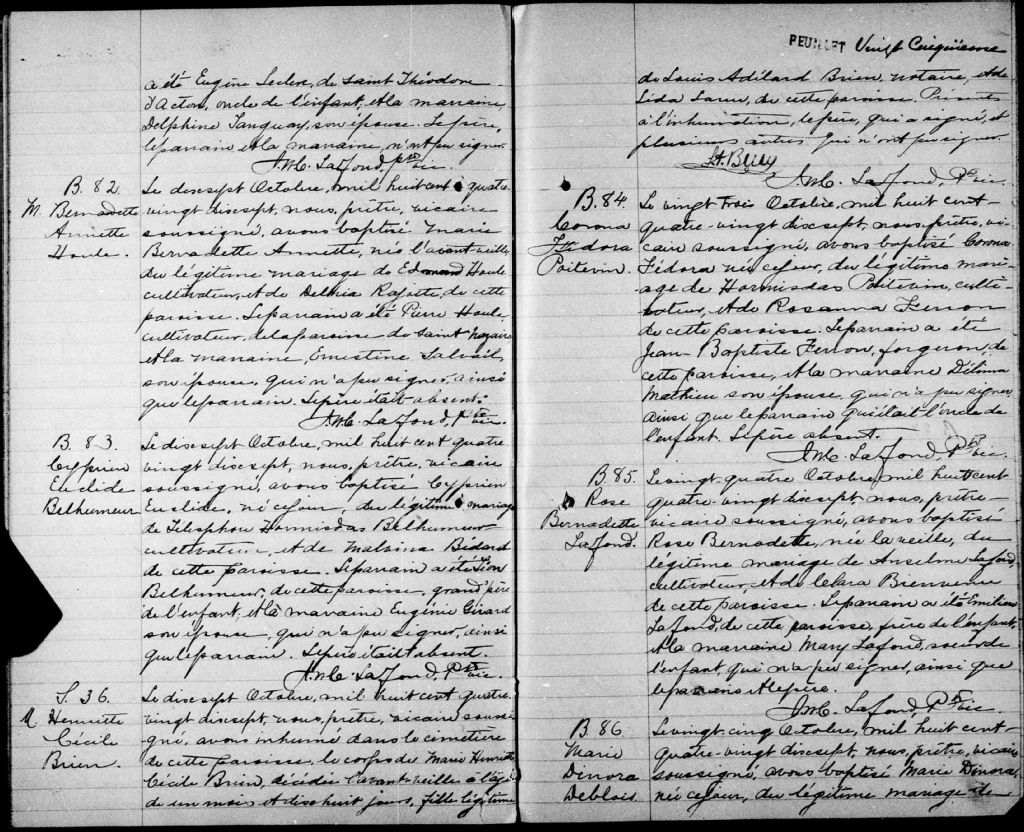 a été Eugène Leclerc, de Saint Théodore
d'Acton, oncle de l'enfant, et la marraine,
Delphine Tanguay, son épouse. Le père,
le parrain et la marraine, n'ont pu signer.
J. M. C. Laffond, Ptre Vic.
B. 82.
M. Bernadette
Annette
Houle.
Le dixsept Octobre, mil huit cent quatre
vingt dixsept, nous, prêtre, vicaire
soussigné, avons baptisé Marie
Bernadette Annette, née l'avant-veille,
du légitime mariage de Edmond Houle
cultivateur, et de Delhia Rajotte, de cette
paroisse. Le parrain a été Pierre Houle
cultivateur, de la paroisse de Saint Nazaire
et la marraine, Ernestine Salvail,
son épouse, qui n'a pu signer, ainsi
que le parrain. Le père était absent.
J. M. C. Laffond, Ptre Vic.
B. 83.
Cyprien
Euclide
Belhumeur
Le dixsept Octobre, mil huit cent quatre
vingt dixsept, nous, prêtre, vicaire
soussigné, avons baptisé Cyprien
Euclide, né ce jour, du légitime mariage
de Télesphore Hormisdas Belhumeur
cultivateur et de Malvina Bédard
de cette paroisse. Le parrain a été Léon
Belhumeur, de cette paroisse, grand père
de l'enfant, et la marraine Eugénie Girard
son épouse, qui n'a pu signer, ainsi
que le parrain. Le père était absent.
J. M. C. Laffond, Ptre Vic.
S. 36.
M. Henriette
Cécile
Brien.
Le dixsept Octobre, mil huit cent quatre
vingt dixsept, nous, prêtre, vicaire soussi
gné, avons inhumé dans le cimetière
de cette paroisse, le corps de Marie Henriette
Cécile Brien, décédée l'avant-veille à l'âge
de un mois et dixhuit jours, fille légitime
FEUILLET Vingt Cinquième
de Louis Adélard Brien, notaire, et de
Lida Larue, de cette paroisse. Présents
à l'inhumation, le père, qui a signé, et
plusieurs autres qui n'ont pu signer.
J. M. C. Laffond, Ptre Vic.
B. 84.
Corona
Fédora
Poitevin.
Le vingt trois Octobre, mil huit cent-
quatre-vingt dixsept, nous, prêtre, vi-
caire soussigné, avons baptisé Corona
Fédora née ce jour, du légitime mari-
age de Hormisdas Poitevin, culti-
vateur, et de Rosanna Ferron
de cette paroisse. Le parrain a été
Jean-Baptiste Ferron, forgeron, de
cette paroisse, et la marraine Délima
Mathieu son épouse, qui n'a pu signer
ainsi que le parrain qui était l'oncle de
l'enfant. Le père absent.
J. M. C. Laffond, Ptre Vic.
B. 85.
Rose
Bernadette
Lafond.
Le vingt quatre Octobre, mil huit cent
quatre-vingt dixsept, nous, prêtre-
vicaire soussigné, avons baptisé
Rose Bernadette, née la veille, du
légitime mariage de Anselme Lafond
cultivateur, et de Clara Bienvenue
de cette paroisse. Le parrain a été Emilien
Lafond, de cette paroisse, frère de l'enfant,
et la marraine Mary Lafond, soeur de
l'enfant, qui n'a pu signer, ainsi que
le parrain et le père.
J. M. C. Laffond, Ptre Vic.
B. 86.
Marie
Dinora
Deblois.
Le vingt-cinq Octobre, mil huit cent-
quatre-vingt dixsept, nous, prêtre, vicaire
soussigné, avons baptisé Marie Dinora,
née ce jour, du légitime mariage de